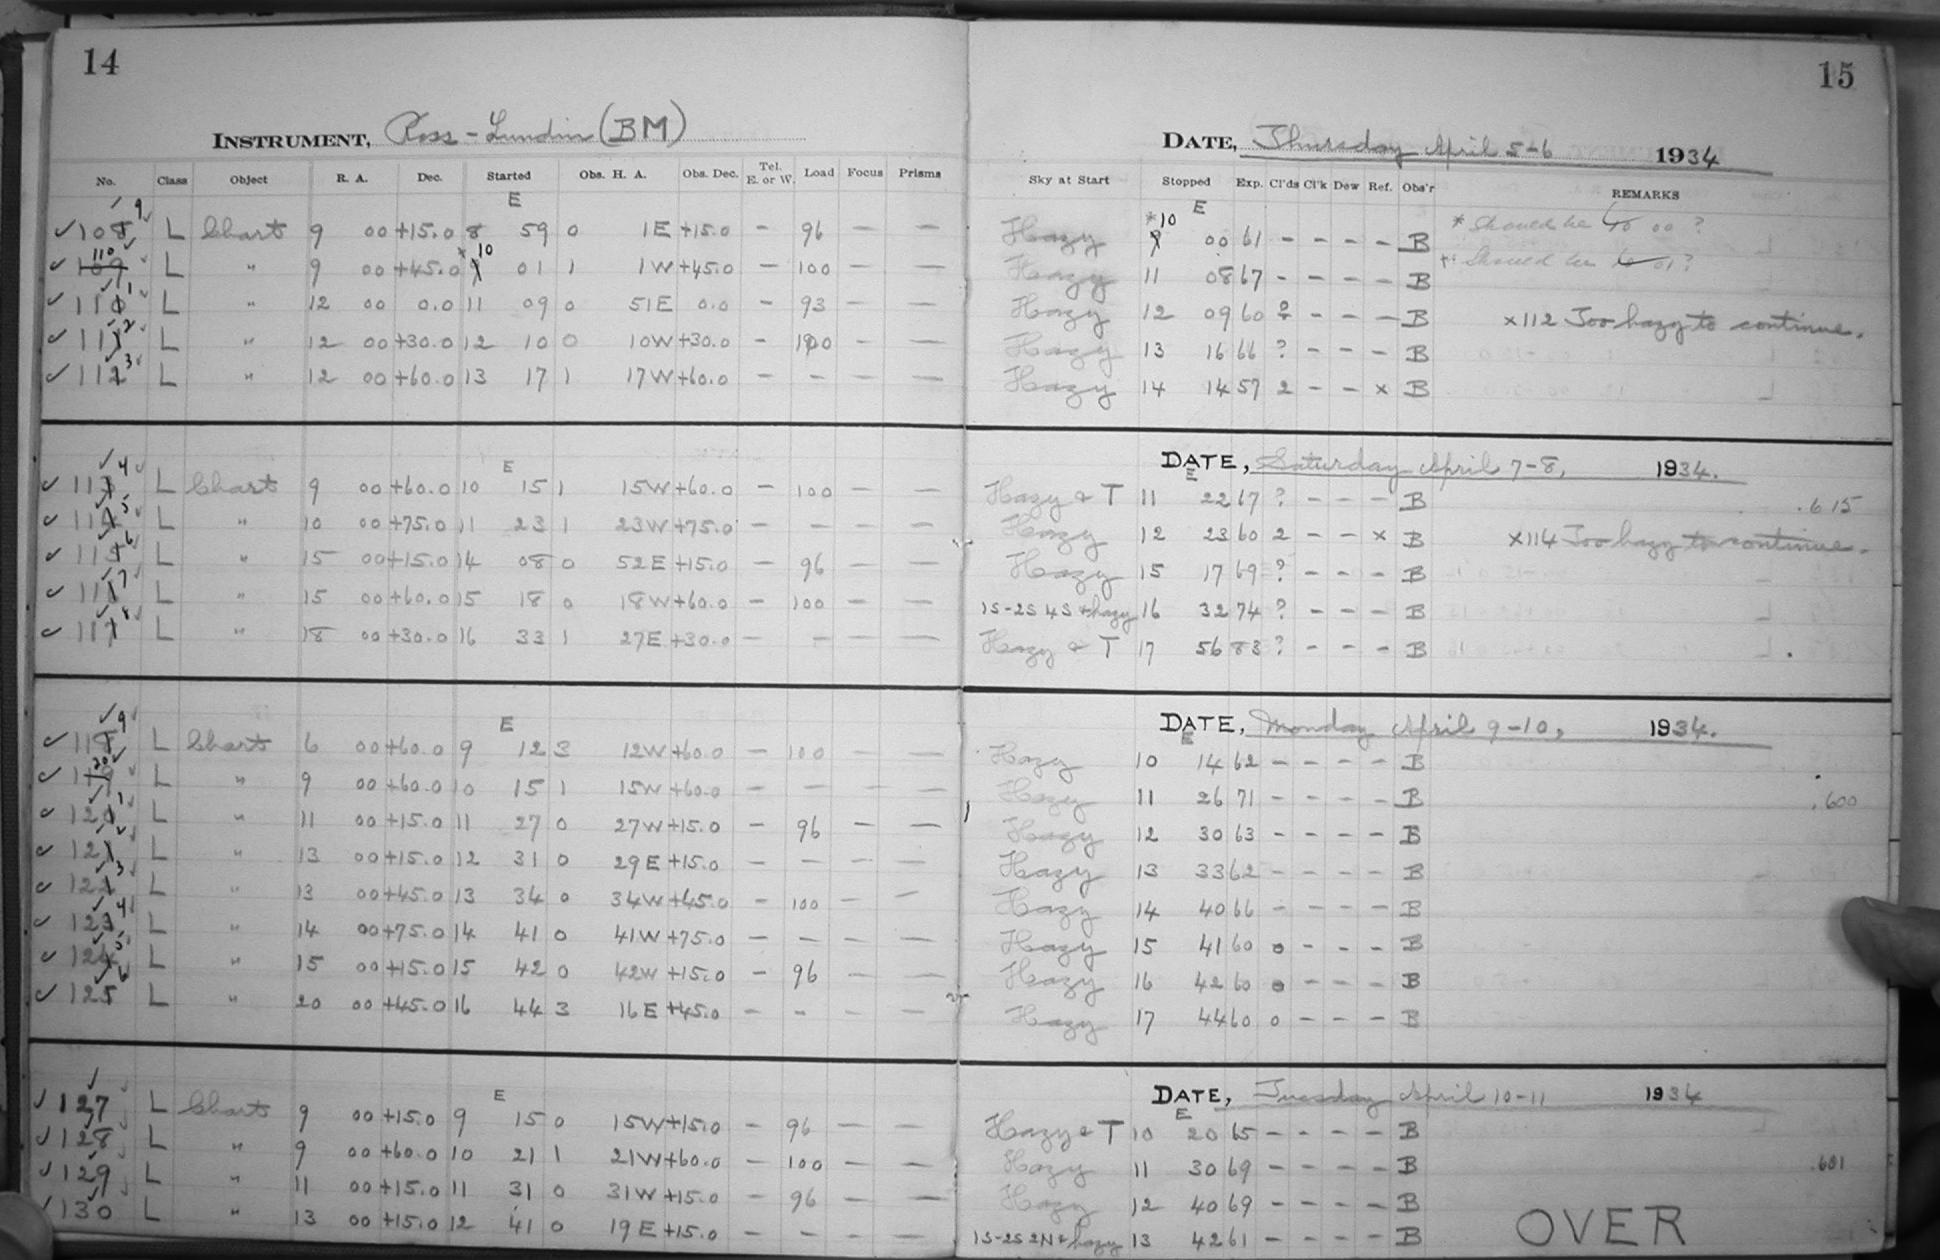 14
INSTRUMENT, Ross-Lundin (BM)
No. Class Object R. A. Dec. Started Obs. H. A. Obs. Dec. Tel. E. or W. Load Focus Prisms
E
108 9 L Chart 9 00 +15.0 8 59 0 1E +15.0 - 96 - -
109 110 L " 9 00 +45.0 * 9 10 01 1 1W +45.0 - 100 - -
110 1 L " 12 00 0.0 11 09 0 51E 0.0 - 93 - -
111 2 L " 12 00 +30.0 12 10 0 10W +30.0 - 100 - -
112 3 L " 12 00 +60.0 13 17 1 17W +60.0 - - - -
E
113 4 L Chart 9 00 +60.0 10 15 1 15W +60.0 - 100 - -
114 5 L " 10 00 +75.0 11 23 1 23W +75.0 - - - -
115 6 L " 15 00 +15.0 14 08 0 52E +15.0 - 96 - -
116 7 L " 15 00 +60.0 15 18 0 18W +60.0 - 100 - -
117 8 L " 18 00 +30.0 16 33 1 27E +30.0 - - - -
E
118 9 L Chart 6 00 +60.0 9 12 3 12W +60.0 - 100 - -
119 20 L " 9 00 +60.0 10 15 1 15W +60.0 - - - -
120 1 L " 11 00 +15.0 11 27 0 27W +15.0 - 96 - -
121 2 L " 13 00 +15.0 12 31 0 29E +15.0 - - - -
122 3 L " 13 00 +45.0 13 34 0 34W +45.0 - 100 - -
123 4 L " 14 00 +75.0 14 41 0 41W +75.0 - - - -
124 5 L " 15 00 +15.0 15 42 0 42W +15.0 - 96 - -
125 6 L " 20 00 +45.0 16 44 3 16E +45.0 - - - -
E
127 L Chart 9 00 +15.0 9 15 0 15W +15.0 - 96 - -
128 L " 9 00 +60.0 10 21 1 21W +60.0 - 100 - -
129 L " 11 00 +15.0 11 31 0 31W +15.0 - 96 - -
130 L " 13 00 +15.0 12 41 0 19E +15.0 - - - -
15
DATE, Thursday April 5-6 1934
Sky at Start Stopped Exp. Cl'ds Cl'k Dew Ref. Obs'r REMARKS
E
Hazy * 9 10 00 61 - - - - B * Should be 10 00 ?
Hazy 11 08 67 - - - - B ** Should be 10 01 ?
Hazy 12 09 60 ? - - - B ×112 Too hazy to continue.
Hazy 13 16 66 ? - - - B
Hazy 14 14 57 2 - - × B
DATE, Saturday April 7-8, 1934.
E
Hazy & T 11 22 67 ? - - - B .615
Hazy 12 23 60 2 - - × B ×114 Too hazy to continue.
Hazy 15 17 69 ? - - - B
1S-2S 4S + hazy 16 32 74 ? - - - B
Hazy & T 17 56 83 ? - - - B
DATE, Monday April 9-10, 1934.
E
Hazy 10 14 62 - - - - B
Hazy 11 26 71 - - - - B .600
Hazy 12 30 63 - - - - B
Hazy 13 33 62 - - - - B
Hazy 14 40 66 - - - - B
Hazy 15 41 60 0 - - - B
Hazy 16 42 60 0 - - - B
Hazy 17 44 60 0 - - - B
DATE, Tuesday April 10-11 1934
E
Hazy & T 10 20 65 - - - - B
Hazy 11 30 69 - - - - B .601
Hazy 12 40 69 - - - - B
1S-2S 2N & hazy 13 42 61 - - - - B
OVER